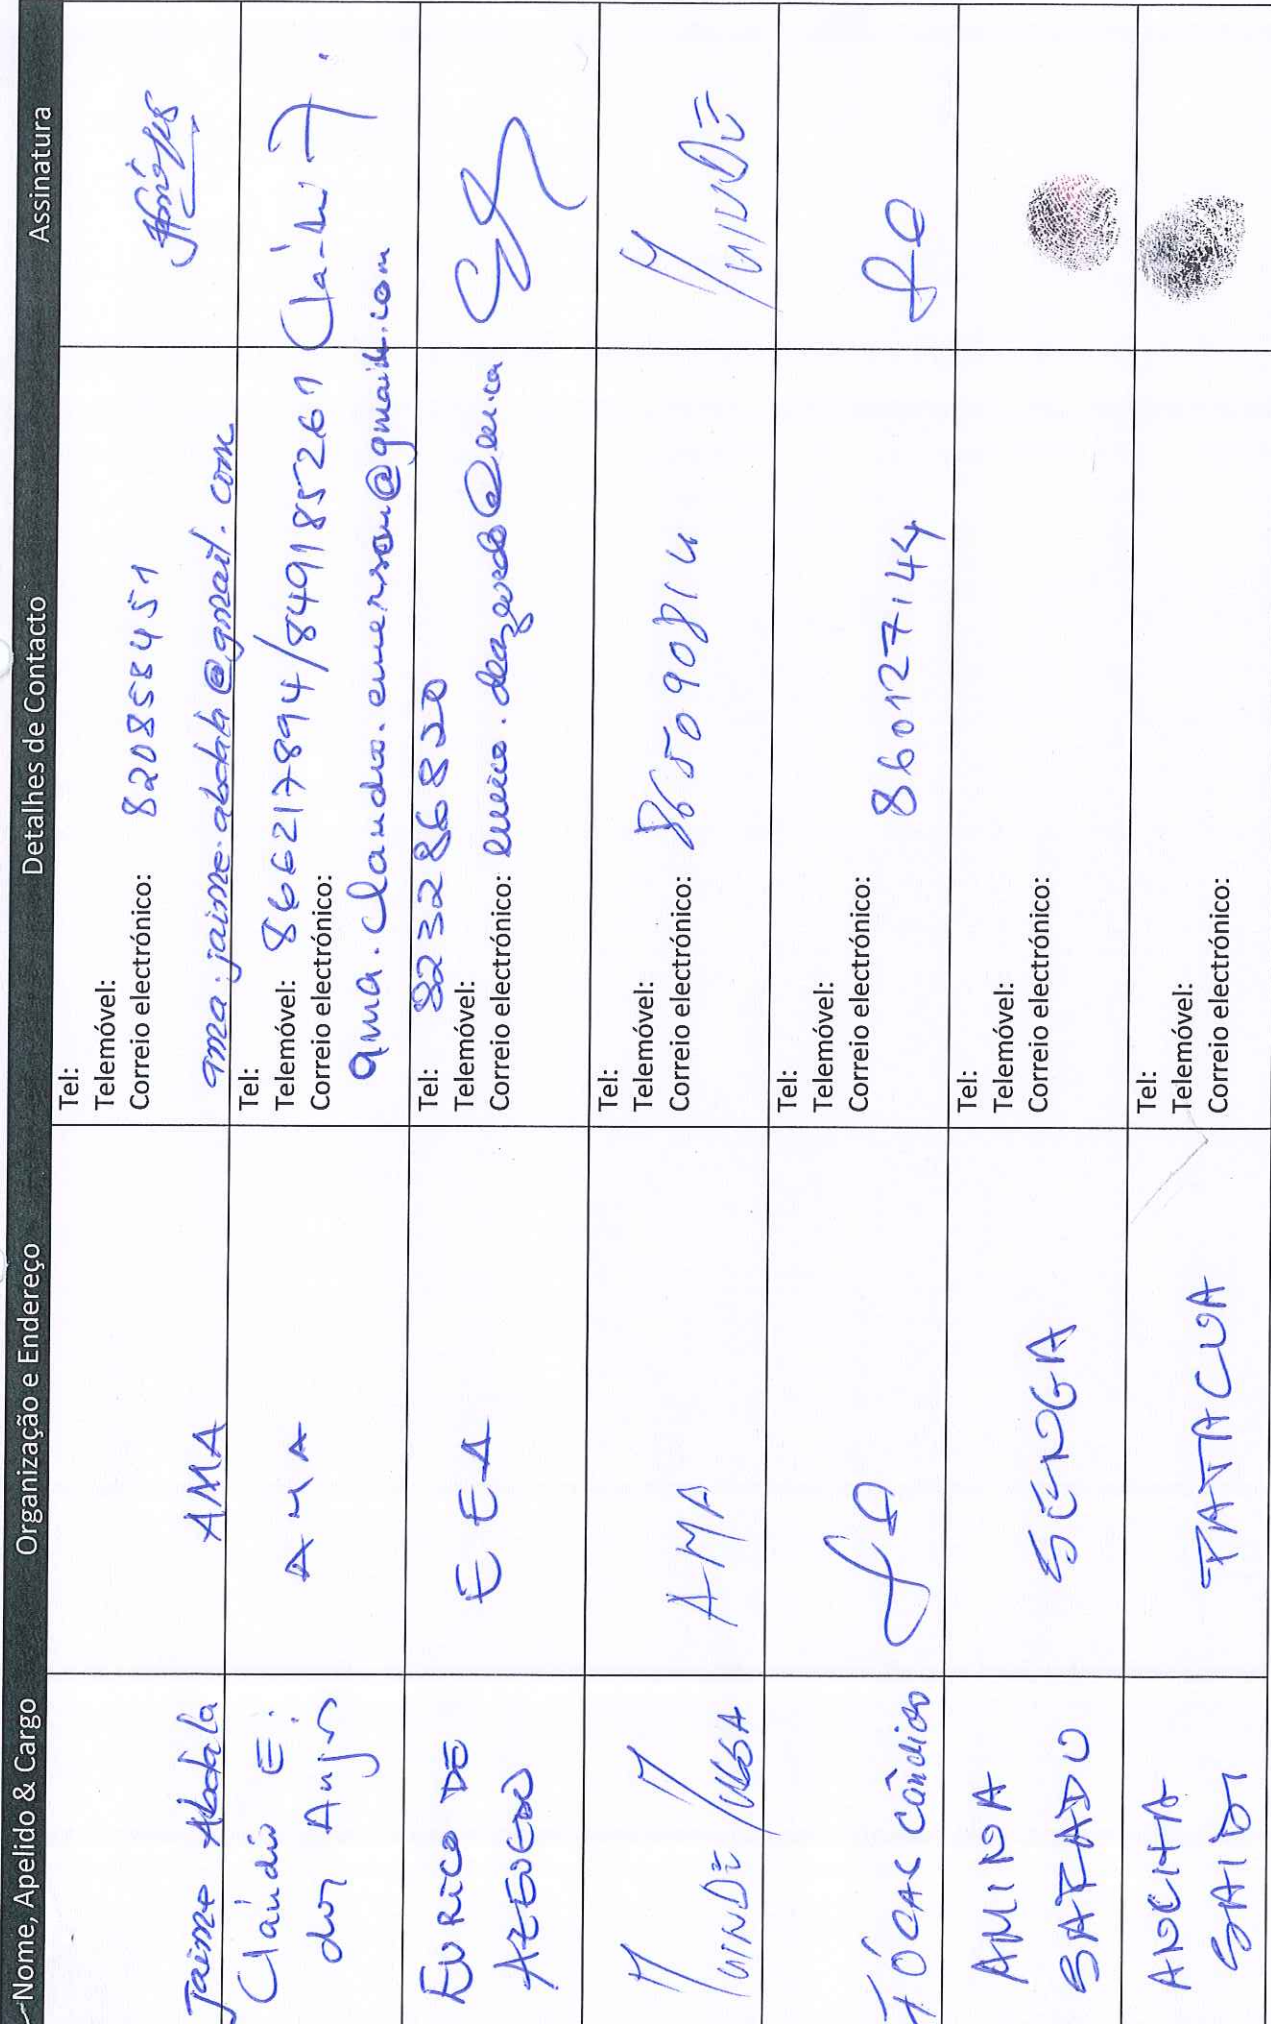 Nome, Apelido & Cargo
Organização e Endereço
Detalhes de Contacto
Assinatura
Jaime Abdala
AMA
Tel:
Telemóvel:
Correio electrónico: 820858451
ama.jaime.abdala@gmail.com
Cláudio E.
dos Anjos
AMA
Tel:
Telemóvel: 866217894/849185261
Correio electrónico:
ama.claudio.emerson@gmail.com
EURICO DE
AZEVEDO
EEA
Tel: 823286820
Telemóvel:
Correio electrónico:
AMA
Tel:
Telemóvel:
Correio electrónico: 865090814
MUINDE
Cândido
Tel:
Telemóvel:
Correio electrónico: 860127144
AMINA
SAFADO
SENGA
Tel:
Telemóvel:
Correio electrónico:
ANCHA
SAIDI
PATACUA
Tel:
Telemóvel:
Correio electrónico: